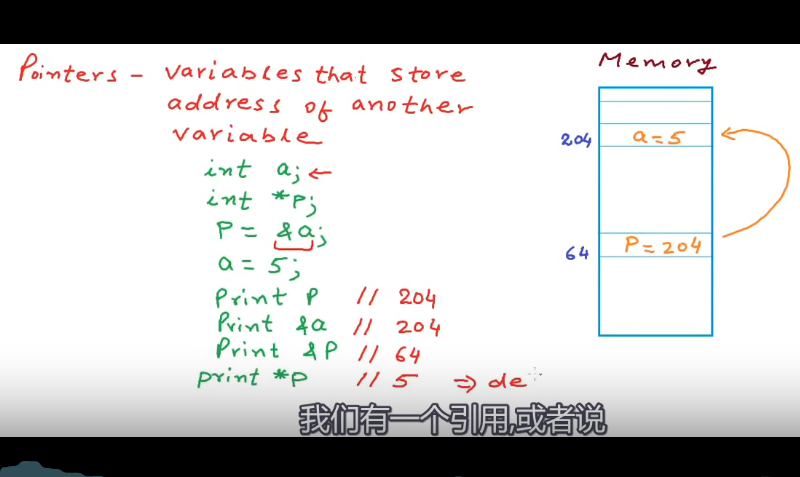 Pointers - variables that store
address of another
variable
int a; ←
int *P;
P = &a;
a = 5;
Print P // 204
Print &a // 204
Print &P // 64
print *P // 5 ⇒ de
Memory
204 a=5
64 P=204
我们有一个引用,或者说